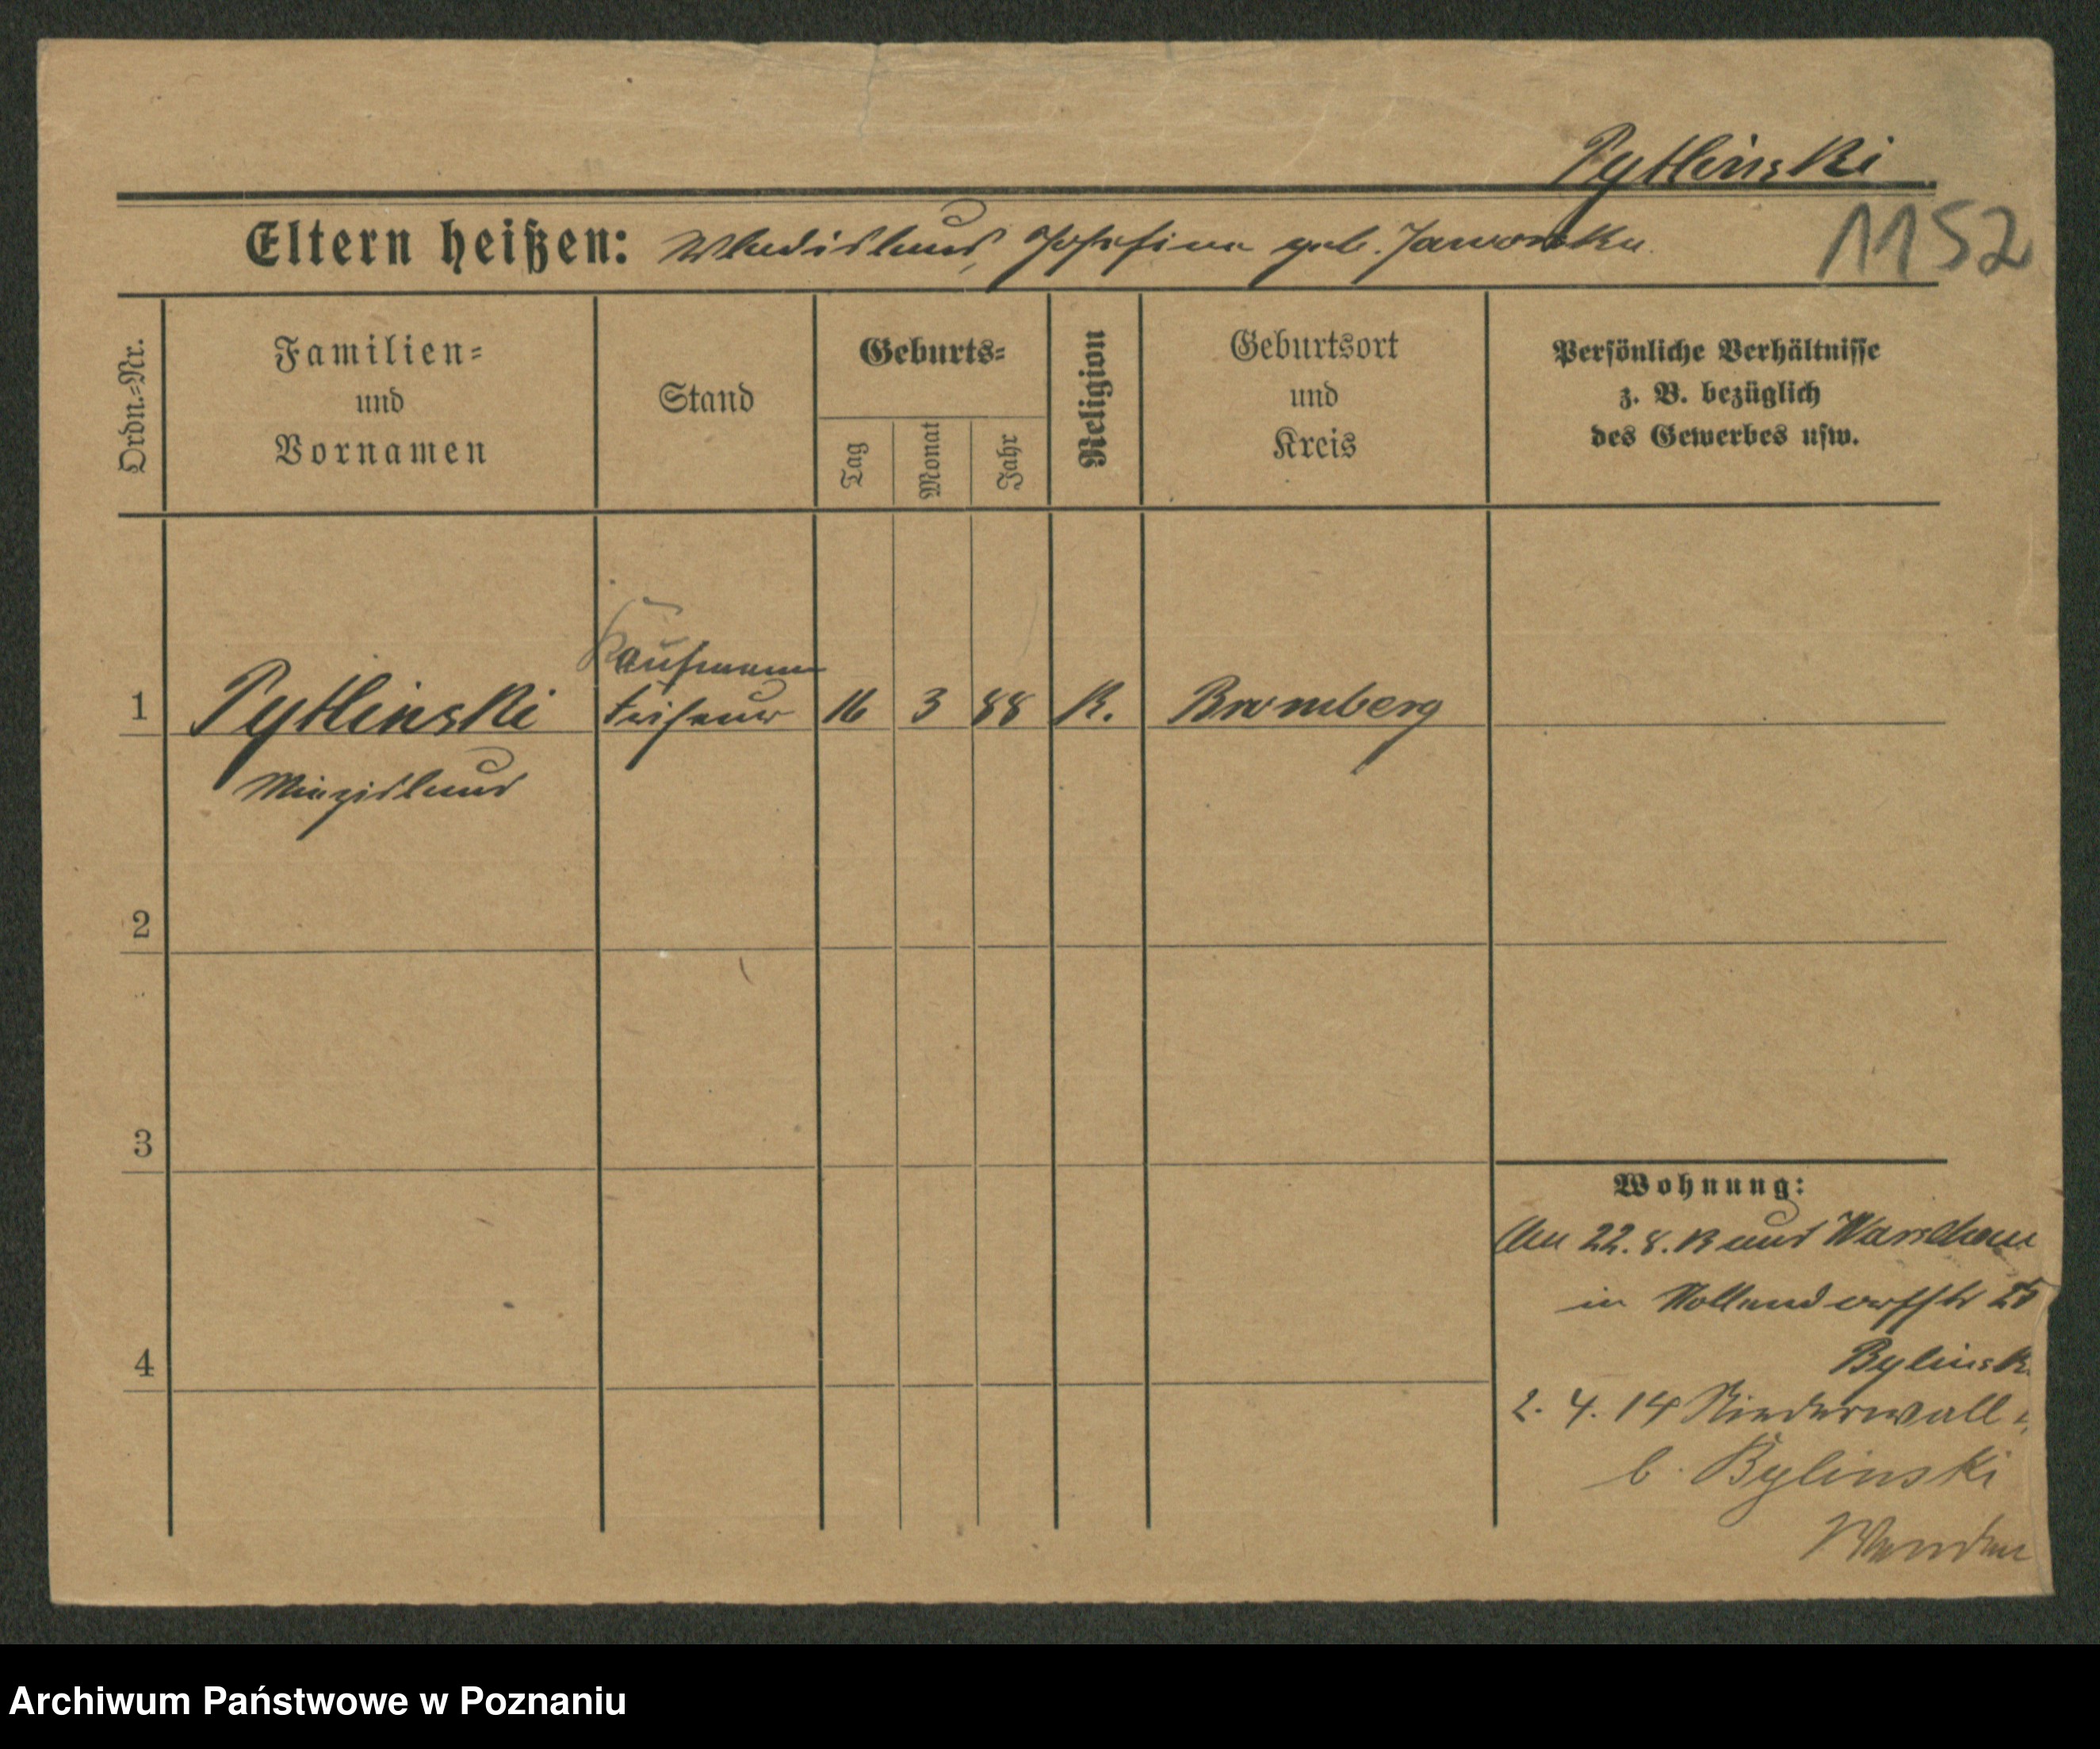 Pytlinski
Eltern heißen: Wladislaus, Josefina geb. Jaworska.
1152
Ordn.=Nr.
Familien=
und
Vornamen
Stand
Geburts=
Tag
Monat
Jahr
Religion
Geburtsort
und
Kreis
Persönliche Verhältnisse
z. B. bezüglich
des Gewerbes usw.
Kaufmann
1 Pytlinski Friseur 16 3 88 K. Bromberg
Miezislaus
2
3
4
Wohnung:
Am 22. 8. 13 aus Warschau
in Hollendorffstr 25
Bylinsk
2. 4. 14 Niederwall
b. Bylinski
Archiwum Państwowe w Poznaniu